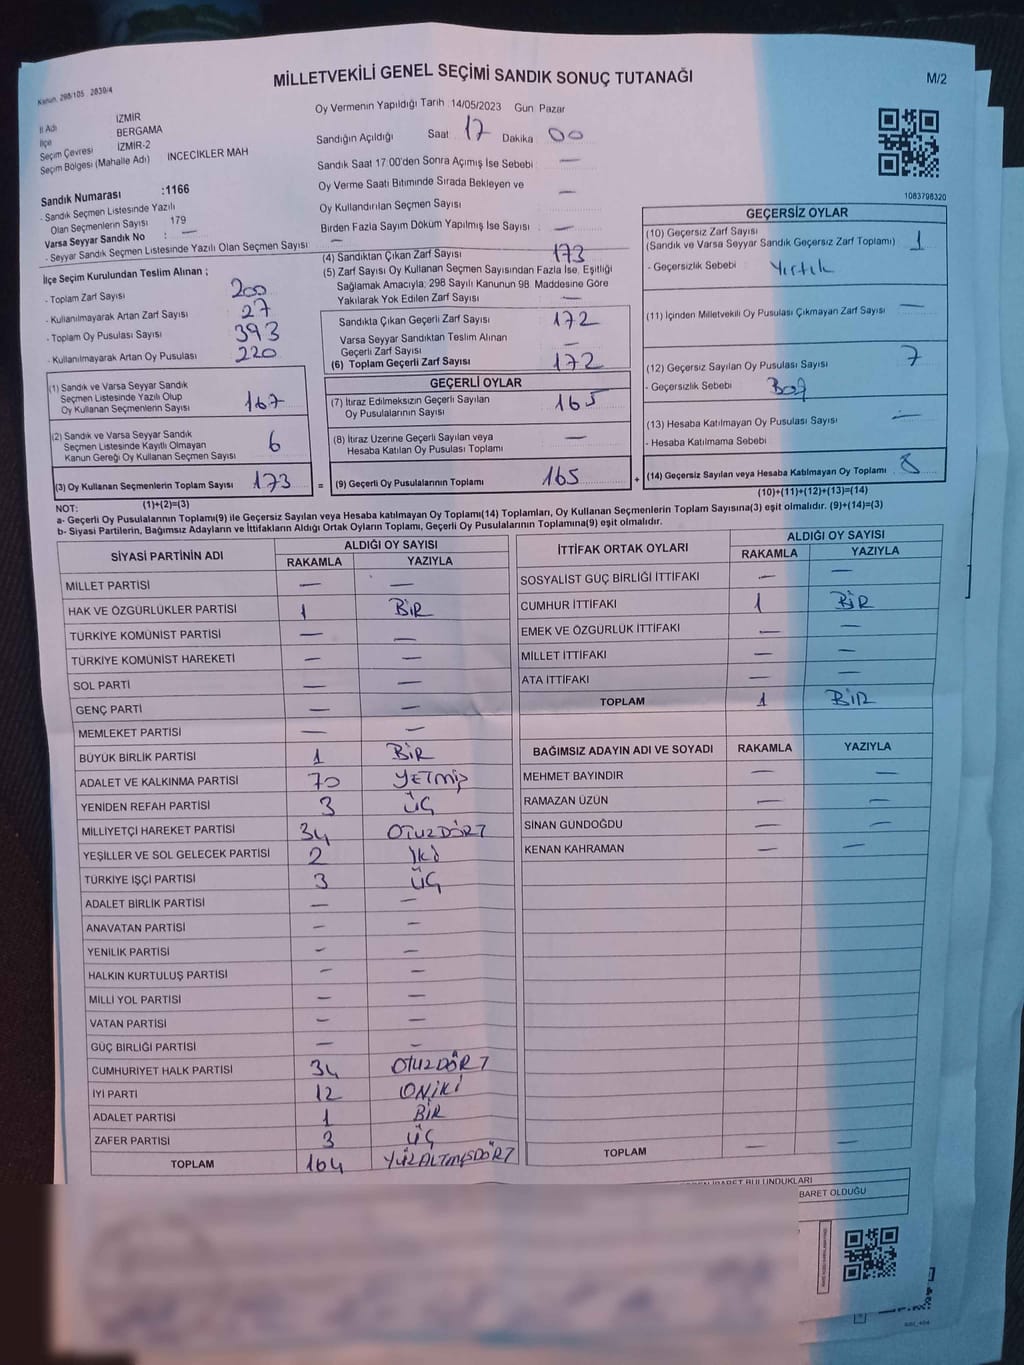 MİLLETVEKİLİ GENEL SEÇİMİ SANDIK SONUÇ TUTANAĞI
M/2
Kanun. 298/105 2839/4
İl Adı İZMİR
İlçe BERGAMA
Seçim Çevresi İZMİR-2
Seçim Bölgesi (Mahalle Adı) İNCECİKLER MAH
Sandık Numarası :1166
- Sandık Seçmen Listesinde Yazılı
Olan Seçmenlerin Sayısı 179
Varsa Seyyar Sandık No : —
- Seyyar Sandık Seçmen Listesinde Yazılı Olan Seçmen Sayısı —
Oy Vermenin Yapıldığı Tarih 14/05/2023 Gün Pazar
Sandığın Açıldığı Saat 17 Dakika 00
Sandık Saat 17:00'den Sonra Açımış İse Sebebi —
Oy Verme Saati Bitiminde Sırada Bekleyen ve
Oy Kullandırılan Seçmen Sayısı —
Birden Fazla Sayım Döküm Yapılmış İse Sayısı —
1083798320
İlçe Seçim Kurulundan Teslim Alınan ;
- Toplam Zarf Sayısı 200
- Kullanılmayarak Artan Zarf Sayısı 27
- Toplam Oy Pusulası Sayısı 393
- Kullanılmayarak Artan Oy Pusulası 220
(1) Sandık ve Varsa Seyyar Sandık
Seçmen Listesinde Yazılı Olup
Oy Kullanan Seçmenlerin Sayısı 167
(2) Sandık ve Varsa Seyyar Sandık
Seçmen Listesinde Kayıtlı Olmayan
Kanun Gereği Oy Kullanan Seçmen Sayısı 6
(3) Oy Kullanan Seçmenlerin Toplam Sayısı 173
(1)+(2)=(3)
(4) Sandıktan Çıkan Zarf Sayısı 173
(5) Zarf Sayısı Oy Kullanan Seçmen Sayısından Fazla İse, Eşitliği
Sağlamak Amacıyla; 298 Sayılı Kanunun 98. Maddesine Göre
Yakılarak Yok Edilen Zarf Sayısı —
Sandıkta Çıkan Geçerli Zarf Sayısı 172
Varsa Seyyar Sandıktan Teslim Alınan
Geçerli Zarf Sayısı —
(6) Toplam Geçerli Zarf Sayısı 172
GEÇERLİ OYLAR
(7) İtiraz Edilmeksizin Geçerli Sayılan
Oy Pusulalarının Sayısı 165
(8) İtiraz Üzerine Geçerli Sayılan veya
Hesaba Katılan Oy Pusulası Toplamı —
= (9) Geçerli Oy Pusulalarının Toplamı 165
GEÇERSİZ OYLAR
(10) Geçersiz Zarf Sayısı
(Sandık ve Varsa Seyyar Sandık Geçersiz Zarf Toplamı) 1
- Geçersizlik Sebebi Yırtık
(11) İçinden Milletvekili Oy Pusulası Çıkmayan Zarf Sayısı —
(12) Geçersiz Sayılan Oy Pusulası Sayısı 7
- Geçersizlik Sebebi Boş
(13) Hesaba Katılmayan Oy Pusulası Sayısı —
- Hesaba Katılmama Sebebi
+ (14) Geçersiz Sayılan veya Hesaba Katılmayan Oy Toplamı 8
(10)+(11)+(12)+(13)=(14)
NOT:
a- Geçerli Oy Pusulalarının Toplamı(9) ile Geçersiz Sayılan veya Hesaba katılmayan Oy Toplamı(14) Toplamları, Oy Kullanan Seçmenlerin Toplam Sayısına(3) eşit olmalıdır. (9)+(14)=(3)
b- Siyasi Partilerin, Bağımsız Adayların ve İttifakların Aldığı Ortak Oyların Toplamı, Geçerli Oy Pusulalarının Toplamına(9) eşit olmalıdır.
SİYASİ PARTİNİN ADI ALDIĞI OY SAYISI
RAKAMLA YAZIYLA
MİLLET PARTİSİ — —
HAK VE ÖZGÜRLÜKLER PARTİSİ 1 BİR
TÜRKİYE KOMÜNİST PARTİSİ — —
TÜRKİYE KOMÜNİST HAREKETİ — —
SOL PARTİ — —
GENÇ PARTİ — —
MEMLEKET PARTİSİ — —
BÜYÜK BİRLİK PARTİSİ 1 BİR
ADALET VE KALKINMA PARTİSİ 70 YETMİŞ
YENİDEN REFAH PARTİSİ 3 ÜÇ
MİLLİYETÇİ HAREKET PARTİSİ 34 OTUZDÖRT
YEŞİLLER VE SOL GELECEK PARTİSİ 2 İKİ
TÜRKİYE İŞÇİ PARTİSİ 3 ÜÇ
ADALET BİRLİK PARTİSİ — —
ANAVATAN PARTİSİ — —
YENİLİK PARTİSİ — —
HALKIN KURTULUŞ PARTİSİ — —
MİLLİ YOL PARTİSİ — —
VATAN PARTİSİ — —
GÜÇ BİRLİĞİ PARTİSİ — —
CUMHURİYET HALK PARTİSİ 34 OTUZDÖRT
İYİ PARTİ 12 ONİKİ
ADALET PARTİSİ 1 BİR
ZAFER PARTİSİ 3 ÜÇ
TOPLAM 164 YÜZALTMIŞDÖRT
İTTİFAK ORTAK OYLARI ALDIĞI OY SAYISI
RAKAMLA YAZIYLA
SOSYALİST GÜÇ BİRLİĞİ İTTİFAKI — —
CUMHUR İTTİFAKI 1 BİR
EMEK VE ÖZGÜRLÜK İTTİFAKI — —
MİLLET İTTİFAKI — —
ATA İTTİFAKI — —
TOPLAM 1 BİR
BAĞIMSIZ ADAYIN ADI VE SOYADI RAKAMLA YAZIYLA
MEHMET BAYINDIR — —
RAMAZAN ÜZÜN — —
SİNAN GÜNDOĞDU — —
KENAN KAHRAMAN — —
TOPLAM — —
BULUNDUKLARI
BARET OLDUĞU